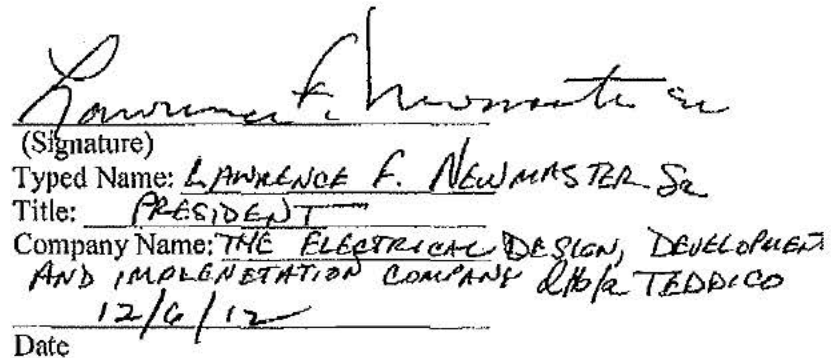 Lawrence F. Newmaster Sr
(Signature)
Typed Name: LAWRENCE F. NEWMASTER Sr
Title: PRESIDENT
Company Name: THE ELECTRICAL DESIGN, DEVELOPMENT
AND IMPLENETATION COMPANY d/b/a TEDDICO
12/6/12
Date